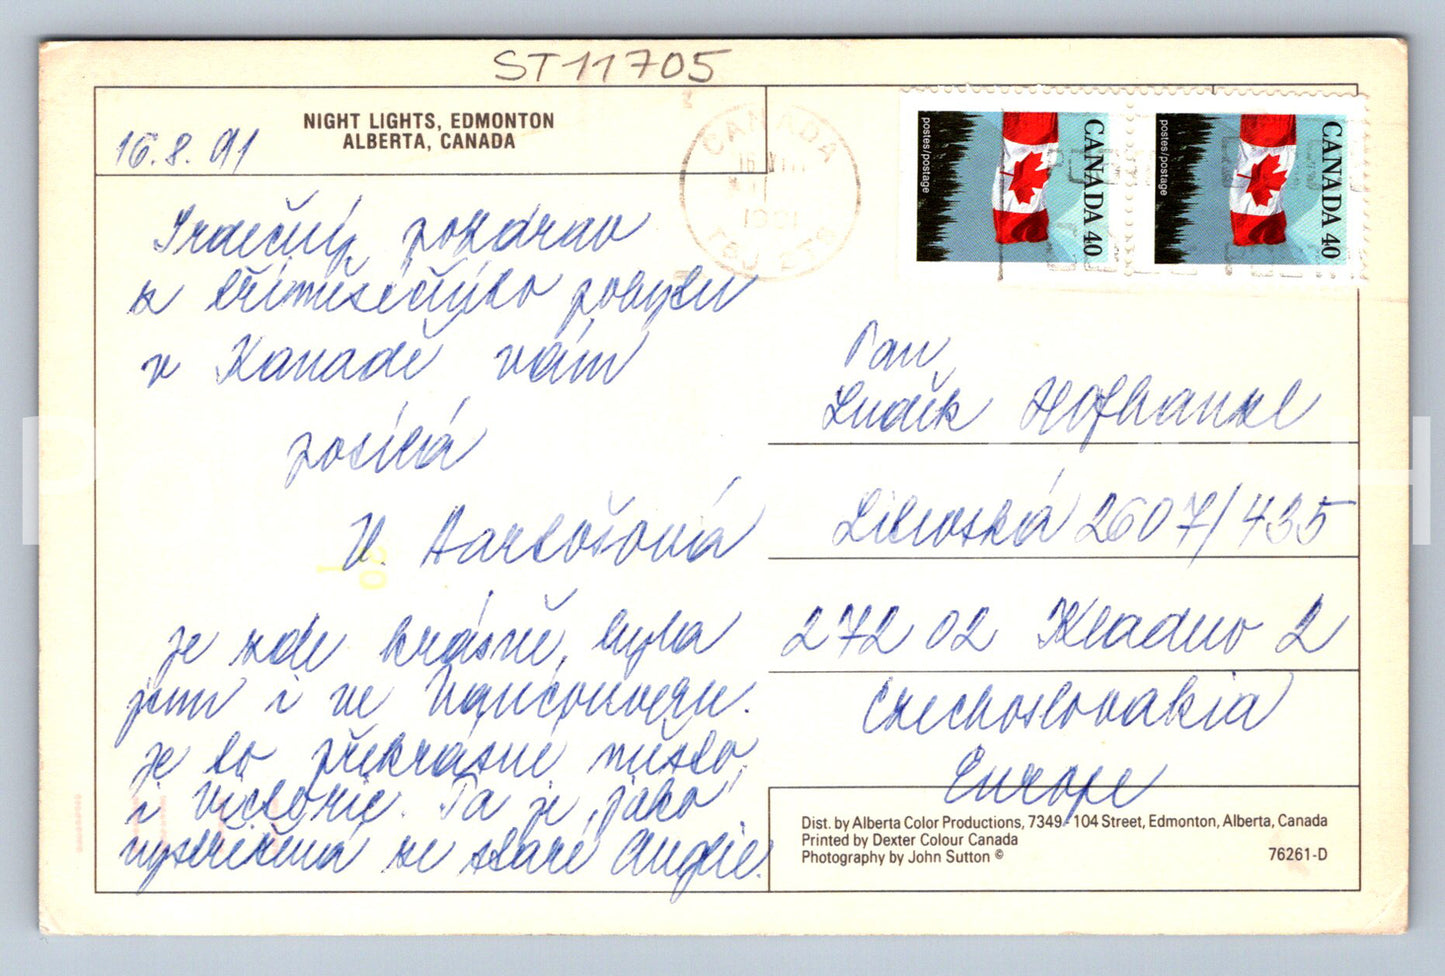 ST11705
NIGHT LIGHTS, EDMONTON
ALBERTA, CANADA
16.8.91
CANADA
1991
CANADA 40
postes/postage
CANADA 40
postes/postage
Srdečný pozdrav
z tříměsíčního pobytu
v Kanadě vám
posílá
V. Bartošová
Je zde krásně, byla
jsem i ve Vancouveru.
Je to překrásné město,
i Victorie. Ta je, jako
vystřižená ze staré Anglie.
Pan
Luděk Hofhanzl
Libušská 2607/435
272 02 Kladno 2
Czechoslovakia
Europe
Dist. by Alberta Color Productions, 7349 - 104 Street, Edmonton, Alberta, Canada
Printed by Dexter Colour Canada
Photography by John Sutton ©
76261-D